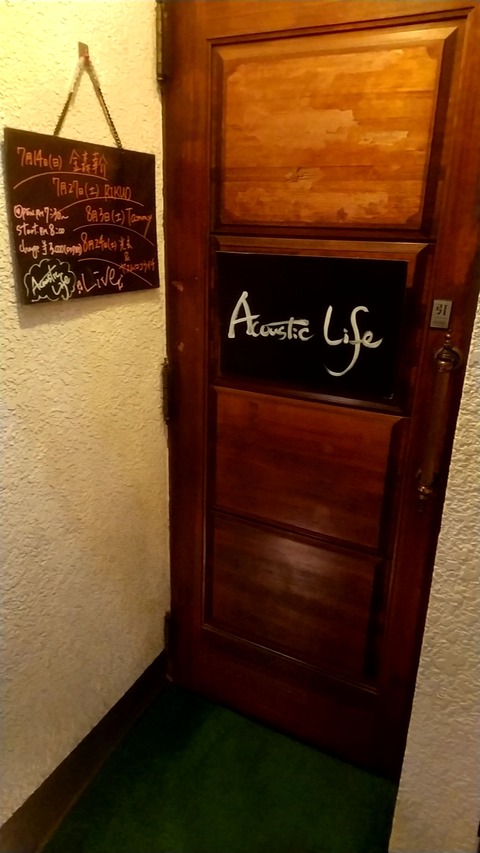 7月14日(日) 金森幸介
7月27日(土) RIKUO
open PM 7:30〜
8月3日(土) Tammy
start PM 8:00
8月24日(土)
&
Acoustic Life
Live
Acoustic Life
引